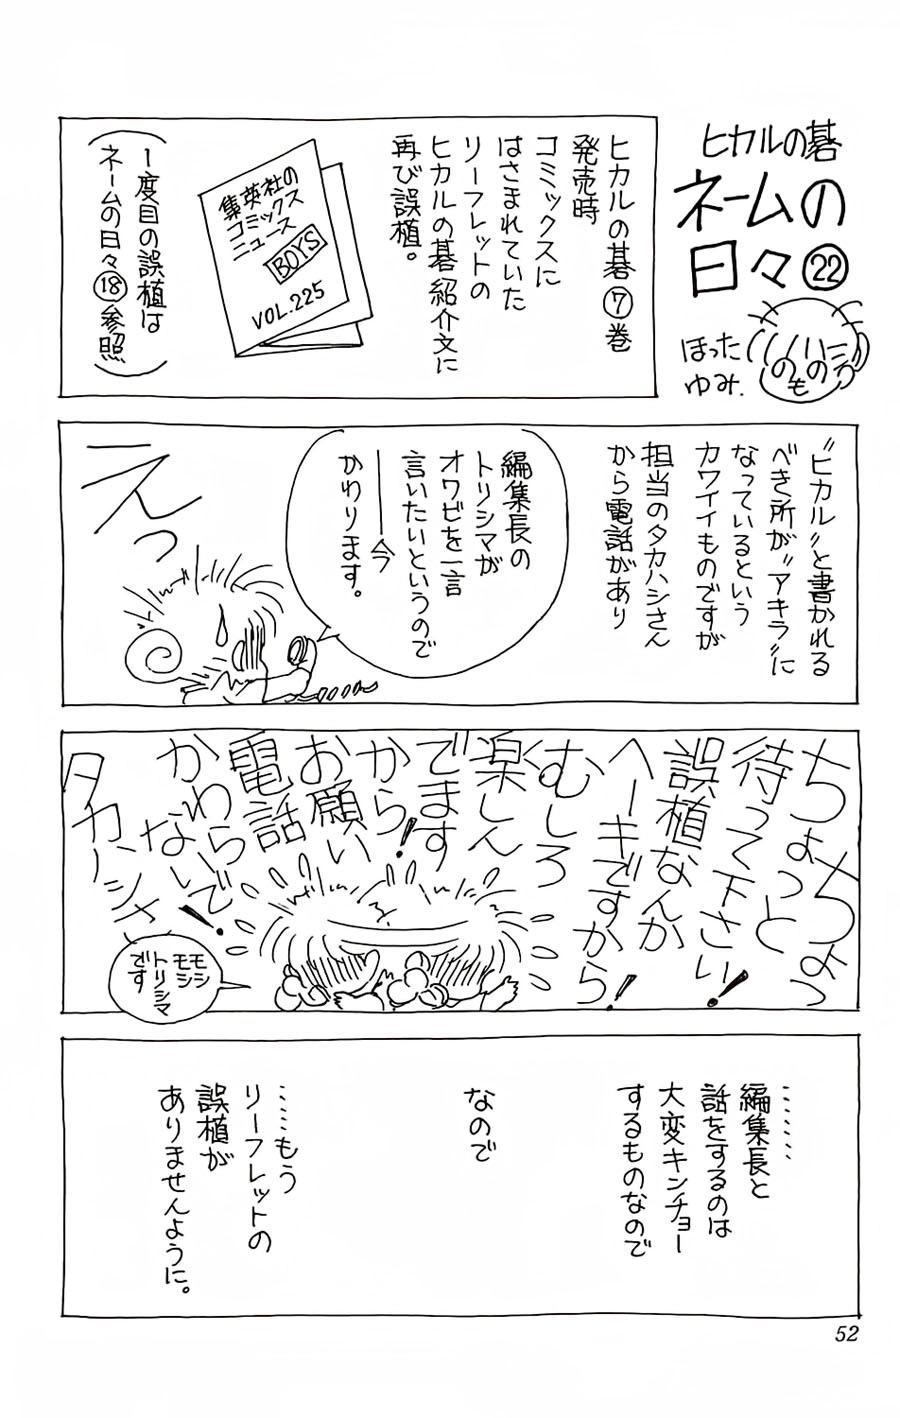 ヒカルの碁
ネームの
日々㉒
ほった
ゆみ.
へのへのもへじ
ヒカルの碁⑦巻
発売時
コミックスに
はさまれていた
リーフレットの
ヒカルの碁紹介文に
再び誤植。
集英社の
コミックス
ニュース
BOYS
VOL.225
(1度目の誤植は
ネームの日々⑱参照)
〝ヒカル〟と書かれる
べき所が〝アキラ〟に
なっているという
カワイイものですが
担当のタカハシさん
から電話があり
編集長の
トリシマが
オワビを一言
言いたいというので
――今
かわります。
えっ
ちょちょっ
ちょっと
待って下さい!
誤植なんか
ヘーキですから!
むしろ
楽しん
でます
から!
お願い
電話
かわらないで!
タカハシさ
モシ
モシ
トリシマ
です
……
編集長と
話をするのは
大変キンチョー
するものなので
なので
……もう
リーフレットの
誤植が
ありませんように。
52